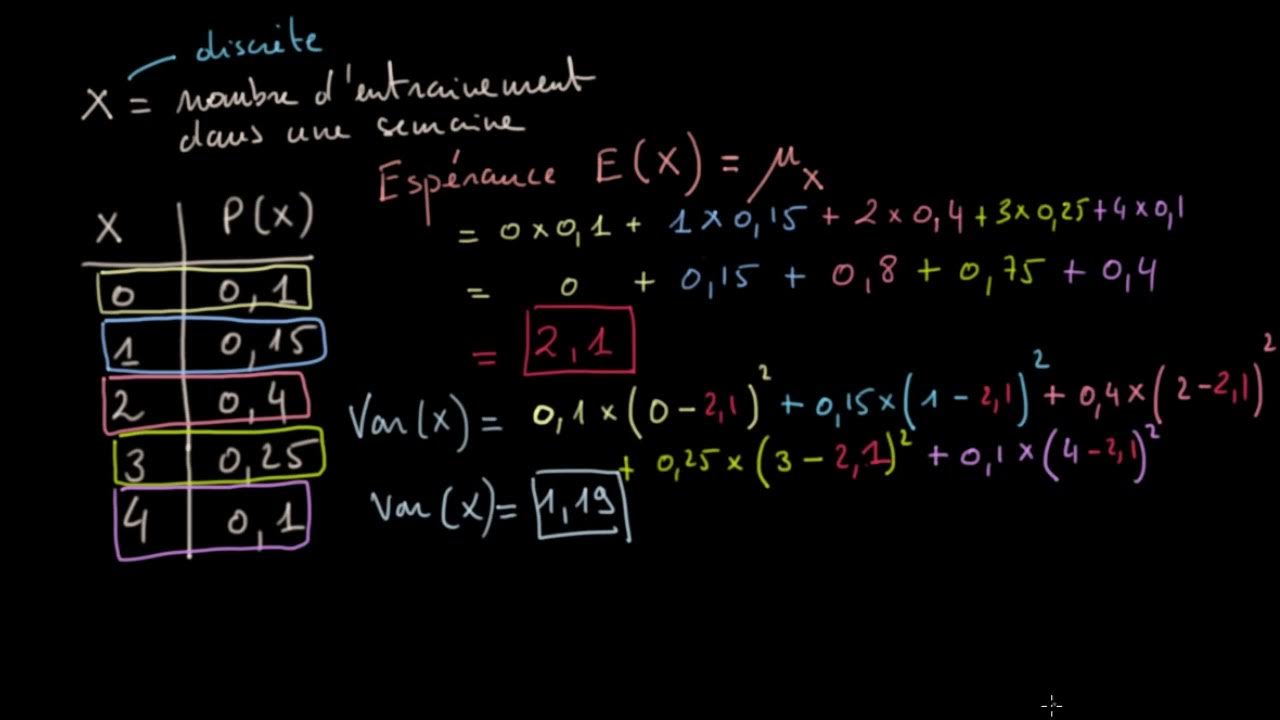 discrète
X = nombre d'entrainement
dans une semaine
Espérance E(X) = μx
X P(X)
0 0,1
1 0,15
2 0,4
3 0,25
4 0,1
= 0×0,1 + 1×0,15 + 2×0,4+3×0,25+4×0,1
= 0 + 0,15 + 0,8 + 0,75 + 0,4
= 2,1
Var(X) = 0,1×(0-2,1)² + 0,15×(1-2,1)² + 0,4×(2-2,1)²
+ 0,25×(3-2,1)² + 0,1×(4-2,1)²
Var(X) = 1,19